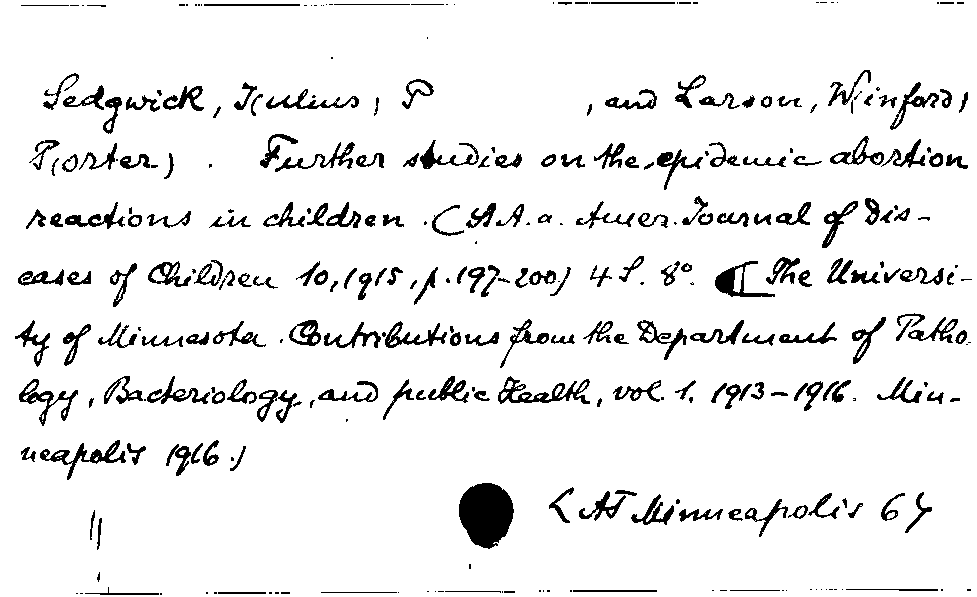 Sedgwick, J(ulius) P , and Larson, W(inford)
P(orter) . Further studies on the epidemic abortion
reactions in children. (A. A. a. Amer. Journal of Dis-
eases of Children 10, 1915, p. 197-200) 4 S. 8°. [The Universi-
ty of Minnesota. Contributions from the Department of Patho
logy, Bacteriology, and public Health, vol. 1. 1913-1916. Min-
neapolis 1916.)
Minneapolis 67